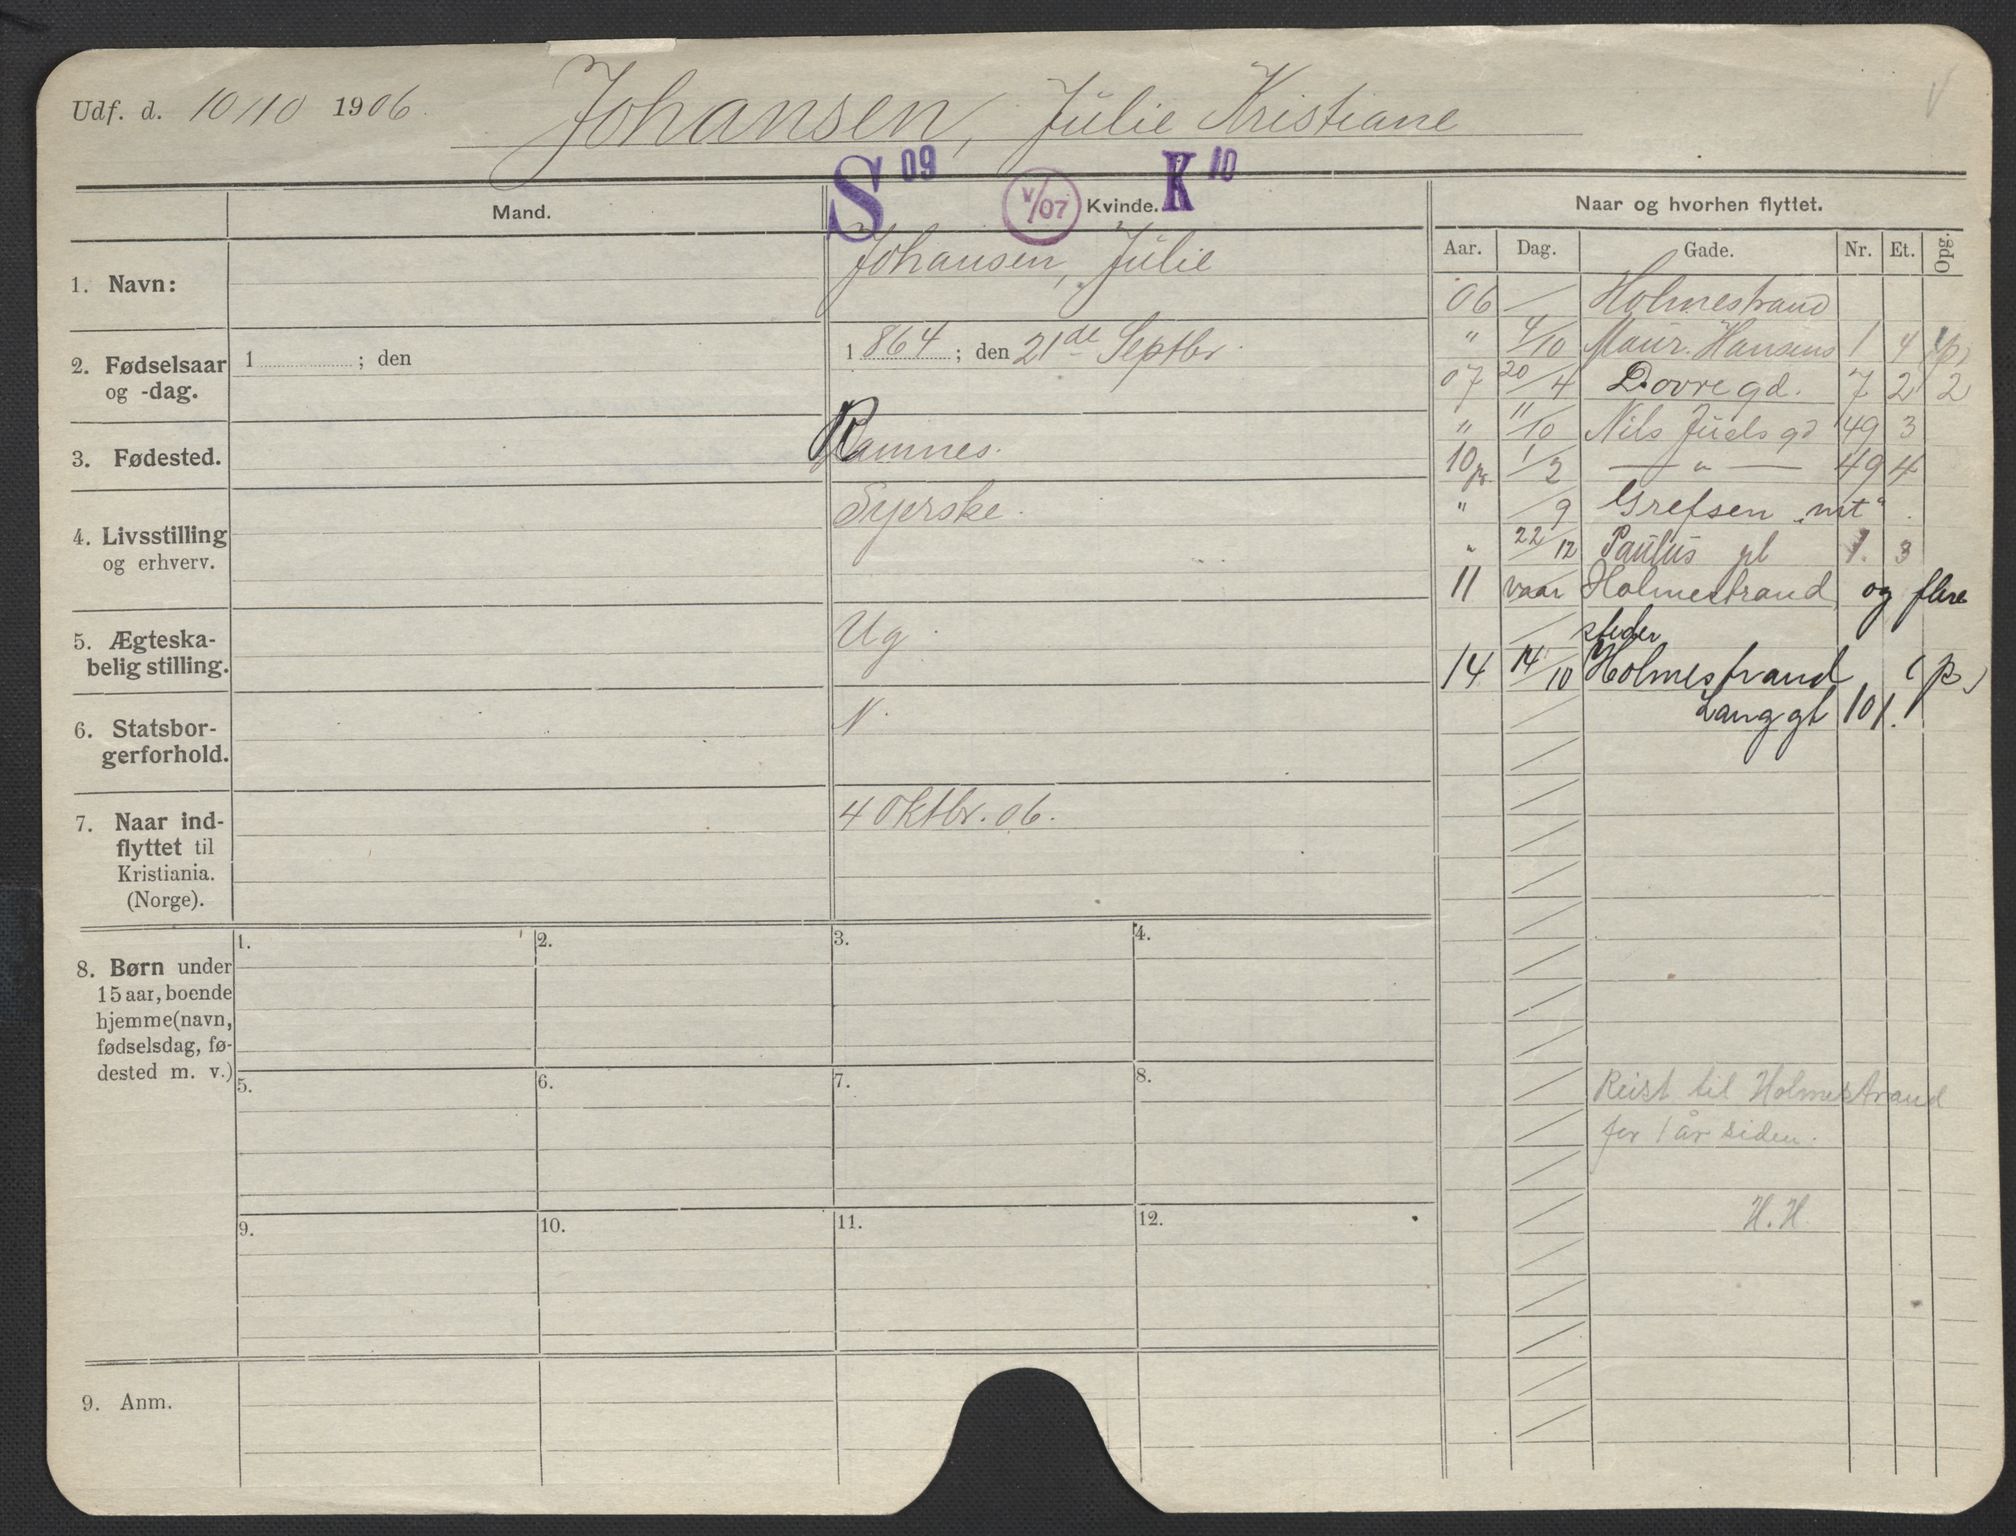 Udf. d. 10/10 1906. Johansen, Julie Kristiane
S 09 V/07 K 10
Mand. Kvinde. Naar og hvorhen flyttet.
Aar. Dag. Gade. Nr. Et. Opg.
1. Navn: Johansen, Julie
2. Fødselsaar og -dag. 1 ; den 1864 ; den 21de Septbr.
3. Fødested. Ramnes.
4. Livsstilling og erhverv. Syerske.
5. Ægteska-
belig stilling. Ug.
6. Statsbor-
gerforhold. N.
7. Naar ind-
flyttet til
Kristiania.
(Norge). 4 Oktbr. 06.
8. Børn under
15 aar, boende
hjemme (navn,
fødselsdag, fø-
dested m. v.)
1. 2. 3. 4.
5. 6. 7. 8.
9. 10. 11. 12.
9. Anm.
06 Holmestrand
" 4/10 Maur. Hansens 1 4 (p)
07 20/4 Dovregd. 7 2 2
" 11/10 Nils Juels gd 49 3
10 pr. 1/2 — " — 49 4
" /9 Grefsen "nt".
" 22/12 Paulus pl 1. 3
11 vaar Holmestrand, og flere
steder
14 14/10 Holmestrand, (p.)
Langgt 101.
Reist til Holmestrand
for 1 år siden.
H.H